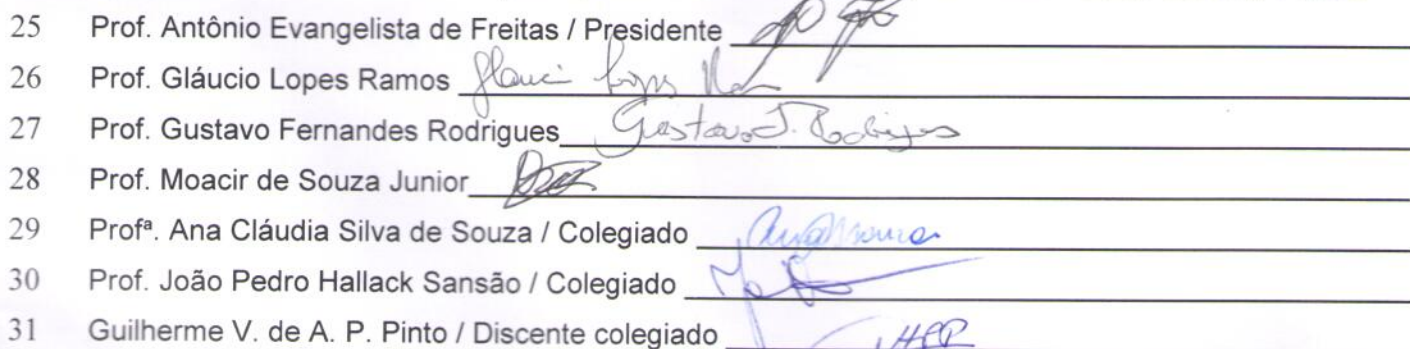 25 Prof. Antônio Evangelista de Freitas / Presidente
26 Prof. Gláucio Lopes Ramos
27 Prof. Gustavo Fernandes Rodrigues Gustavo F. Rodrigues
28 Prof. Moacir de Souza Junior
29 Profª. Ana Cláudia Silva de Souza / Colegiado
30 Prof. João Pedro Hallack Sansão / Colegiado
31 Guilherme V. de A. P. Pinto / Discente colegiado